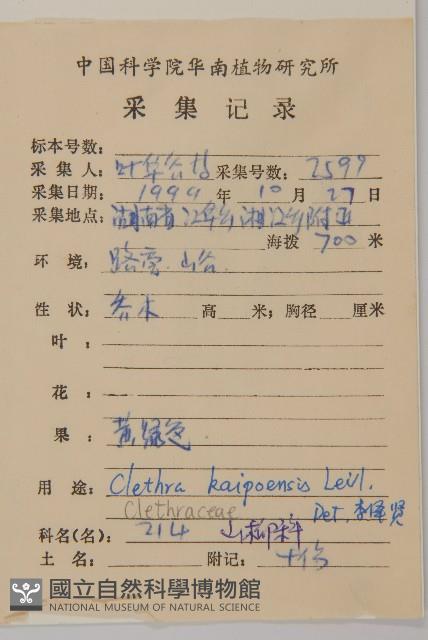 中国科学院华南植物研究所
采集记录
标本号数:
采集人: 叶华谷 采集号数: 2597
采集日期: 1999 年 10 月 27 日
采集地点: 湖南省江华乡湘江乡附近
海拔 700 米
环境: 路旁.山谷.
性状: 乔木 高 米; 胸径 厘米
叶:
花:
果: 黄绿色
用途: Clethra kaipoensis Levl.
Clethraceae Det. 李泽贤
科名(名): 214 山柳
土名: 附记: 十份
國立自然科學博物館
NATIONAL MUSEUM OF NATURAL SCIENCE